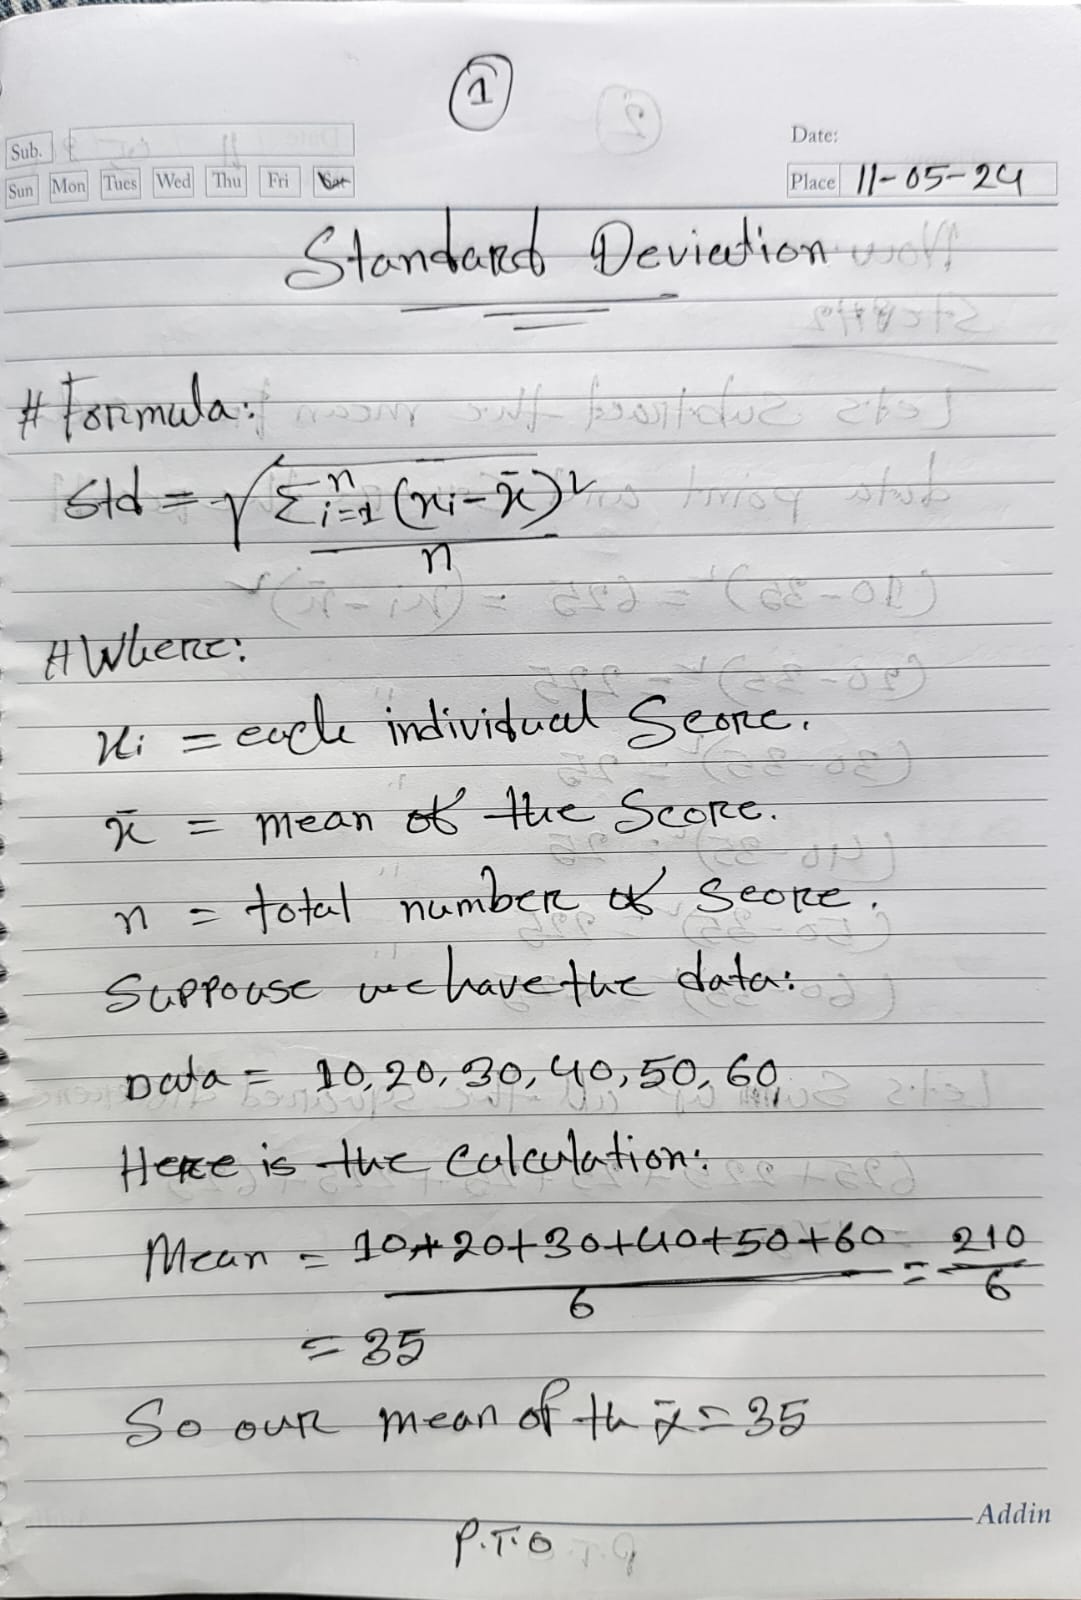 1
Sub.
Date:
Sun Mon Tues Wed Thu Fri Sat
Place 11-05-24
Standard Deviation
# Formula:
Std = √ Σ i=1 n (xi - x̄)²
n
# Where:
xi = each individual Score.
x̄ = mean of the Score.
n = total number of Score.
Suppouse we have the data:
Data = 10, 20, 30, 40, 50, 60
Here is the Calculation:
Mean = 10+20+30+40+50+60 / 6 = 210 / 6
= 35
So our mean of th x̄ = 35
Addin
P.T.O